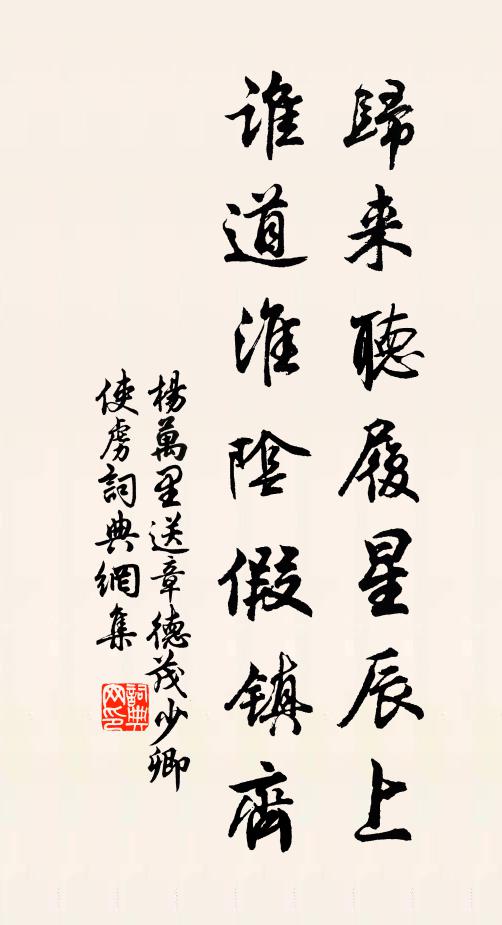 歸来聽履星辰上
誰道淮陰假镇齊
楊萬里送章德茂少卿
使虏詞典網集
詞典网印